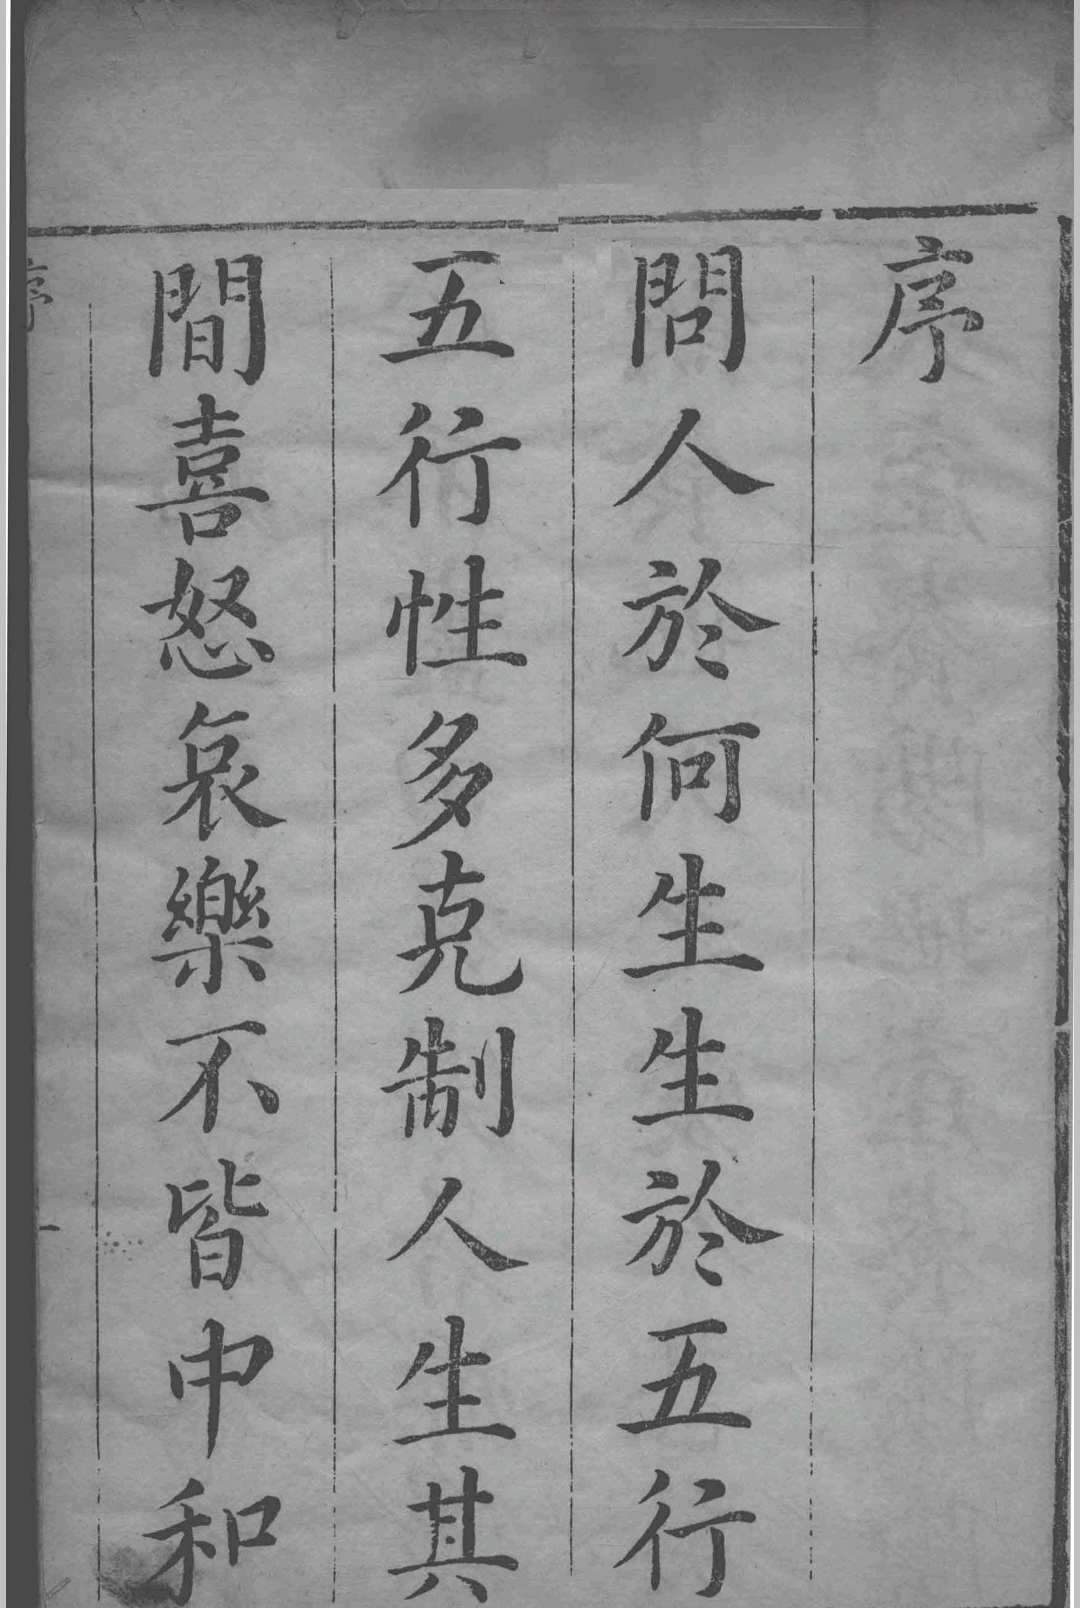 序
問人於何生生於五行
五行性多克制人生其
間喜怒哀樂不皆中和
序
一